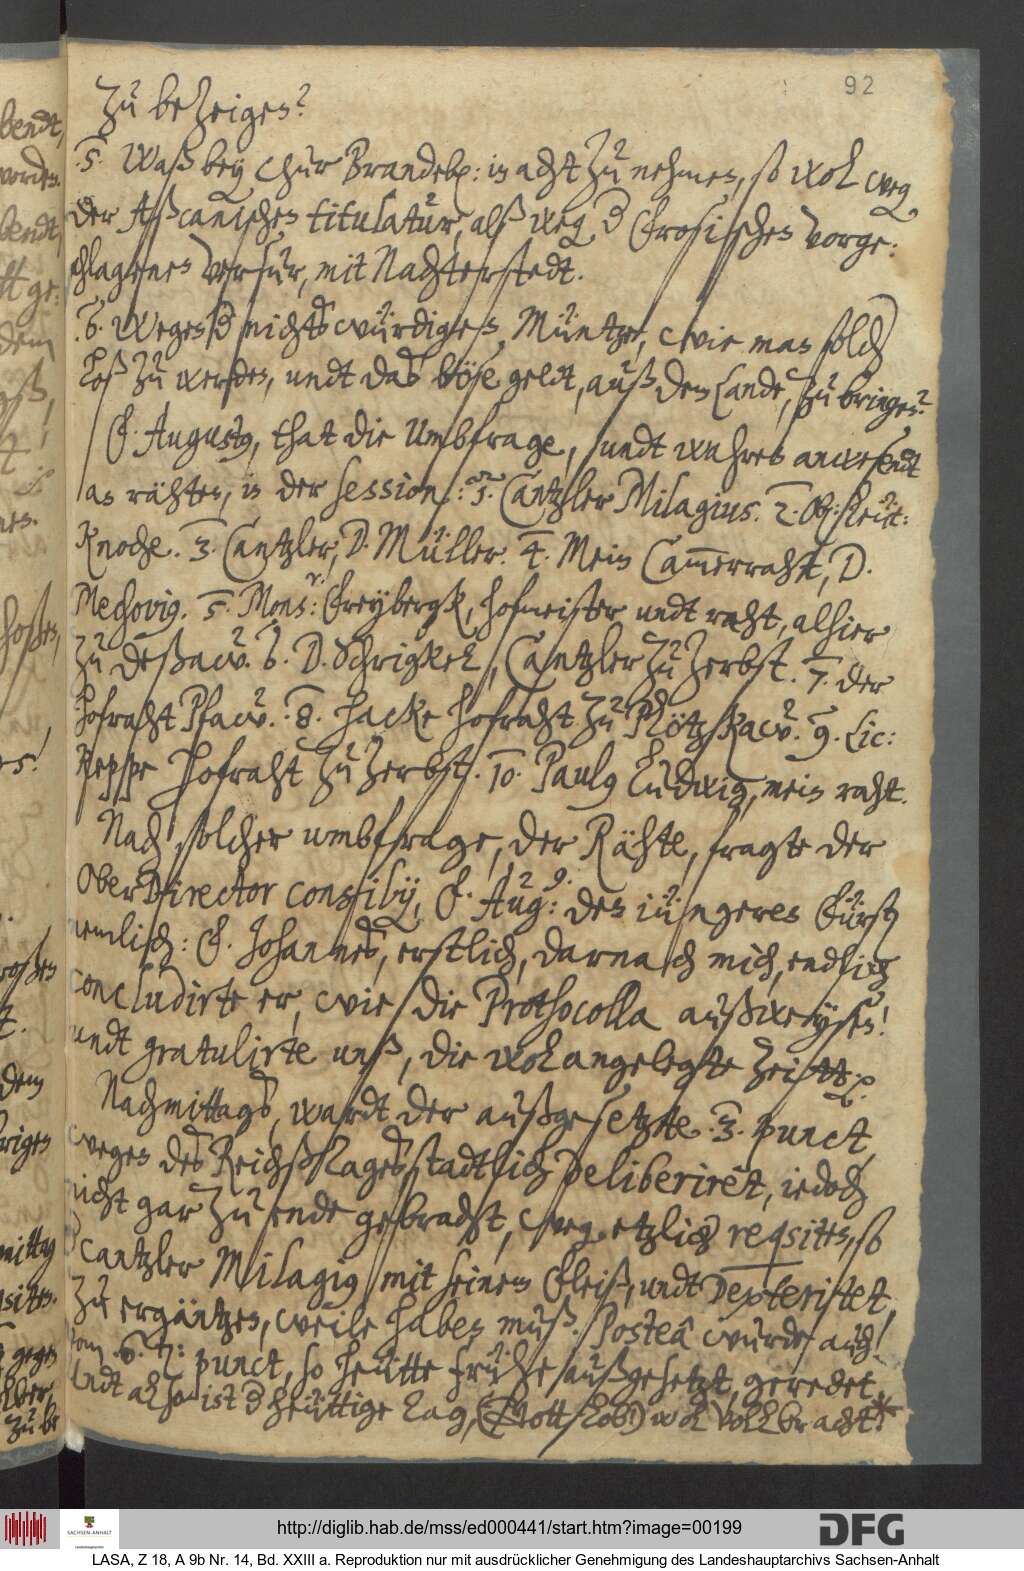 92
zu bezeigen?
.5. Waß bey Chur Brandeb: in acht zu nehmen, so wol weg
der Aßcanischen titulatur, alß weg d Frosischen vorge:
schlagenen Versur, mit Nachterstedt.
.6. Wegen d nichtswürdigen Müntze, wie man solch
loß zu werden, undt das böse geldt, auß dem Lande, zu bringen?
F. Augusty, that die Umbfrage, undt wahren anwesendt
an rähten, in der session: .1. Cantzler Milagius. 2. Ob:
Knoche. 3. Cantzler, D. Müller. 4. Mein Cammerraht, D.
Mechovig. 5. Mons: Freybergk, hofmeister undt raht, alhier
zu Deßaw. 6. D. Schrigkel, Cantzler zu Zerbst. 7. der
hofraht Pfaw. .8. Hacke hofraht zu Plötzkaw. 9. Lic:
Reppe Hofraht zu Zerbst. 10. Pauly Ludwig, mein raht.
Nach solcher umbfrage, der Rähte, fragte der
Ober Director consilij, F. Aug: den iüngeren Fürsten
nemlich: F. Johannes, erstlich, darnach mich, endlich
concludirte er, wie die Prothocolla außweysen!
undt gratulirte unß, die wol angelegte Zeitt.
Nachmittags, wardt der außgesetzte .3. punct,
wegen des Reichßtages, stadtlich deliberirèt, iedoch
nicht gar zu ende gebracht, weg etzlich reqsiten, so
Cantzler Milagiy mit seinem Fleiß, undt Dexteritet,
zu ergäntzen, weile haben muß. Posteà wurde auch!
vom .6. punct, so heütte frühe außgesetzt, geredet.
undt also ist d heüttige Tag, (Gott lob!) wol vollbracht!
http://diglib.hab.de/mss/ed000441/start.htm?image=00199
SACHSEN-ANHALT
DFG
LASA, Z 18, A 9b Nr. 14, Bd. XXIII a. Reproduktion nur mit ausdrücklicher Genehmigung des Landeshauptarchivs Sachsen-Anhalt